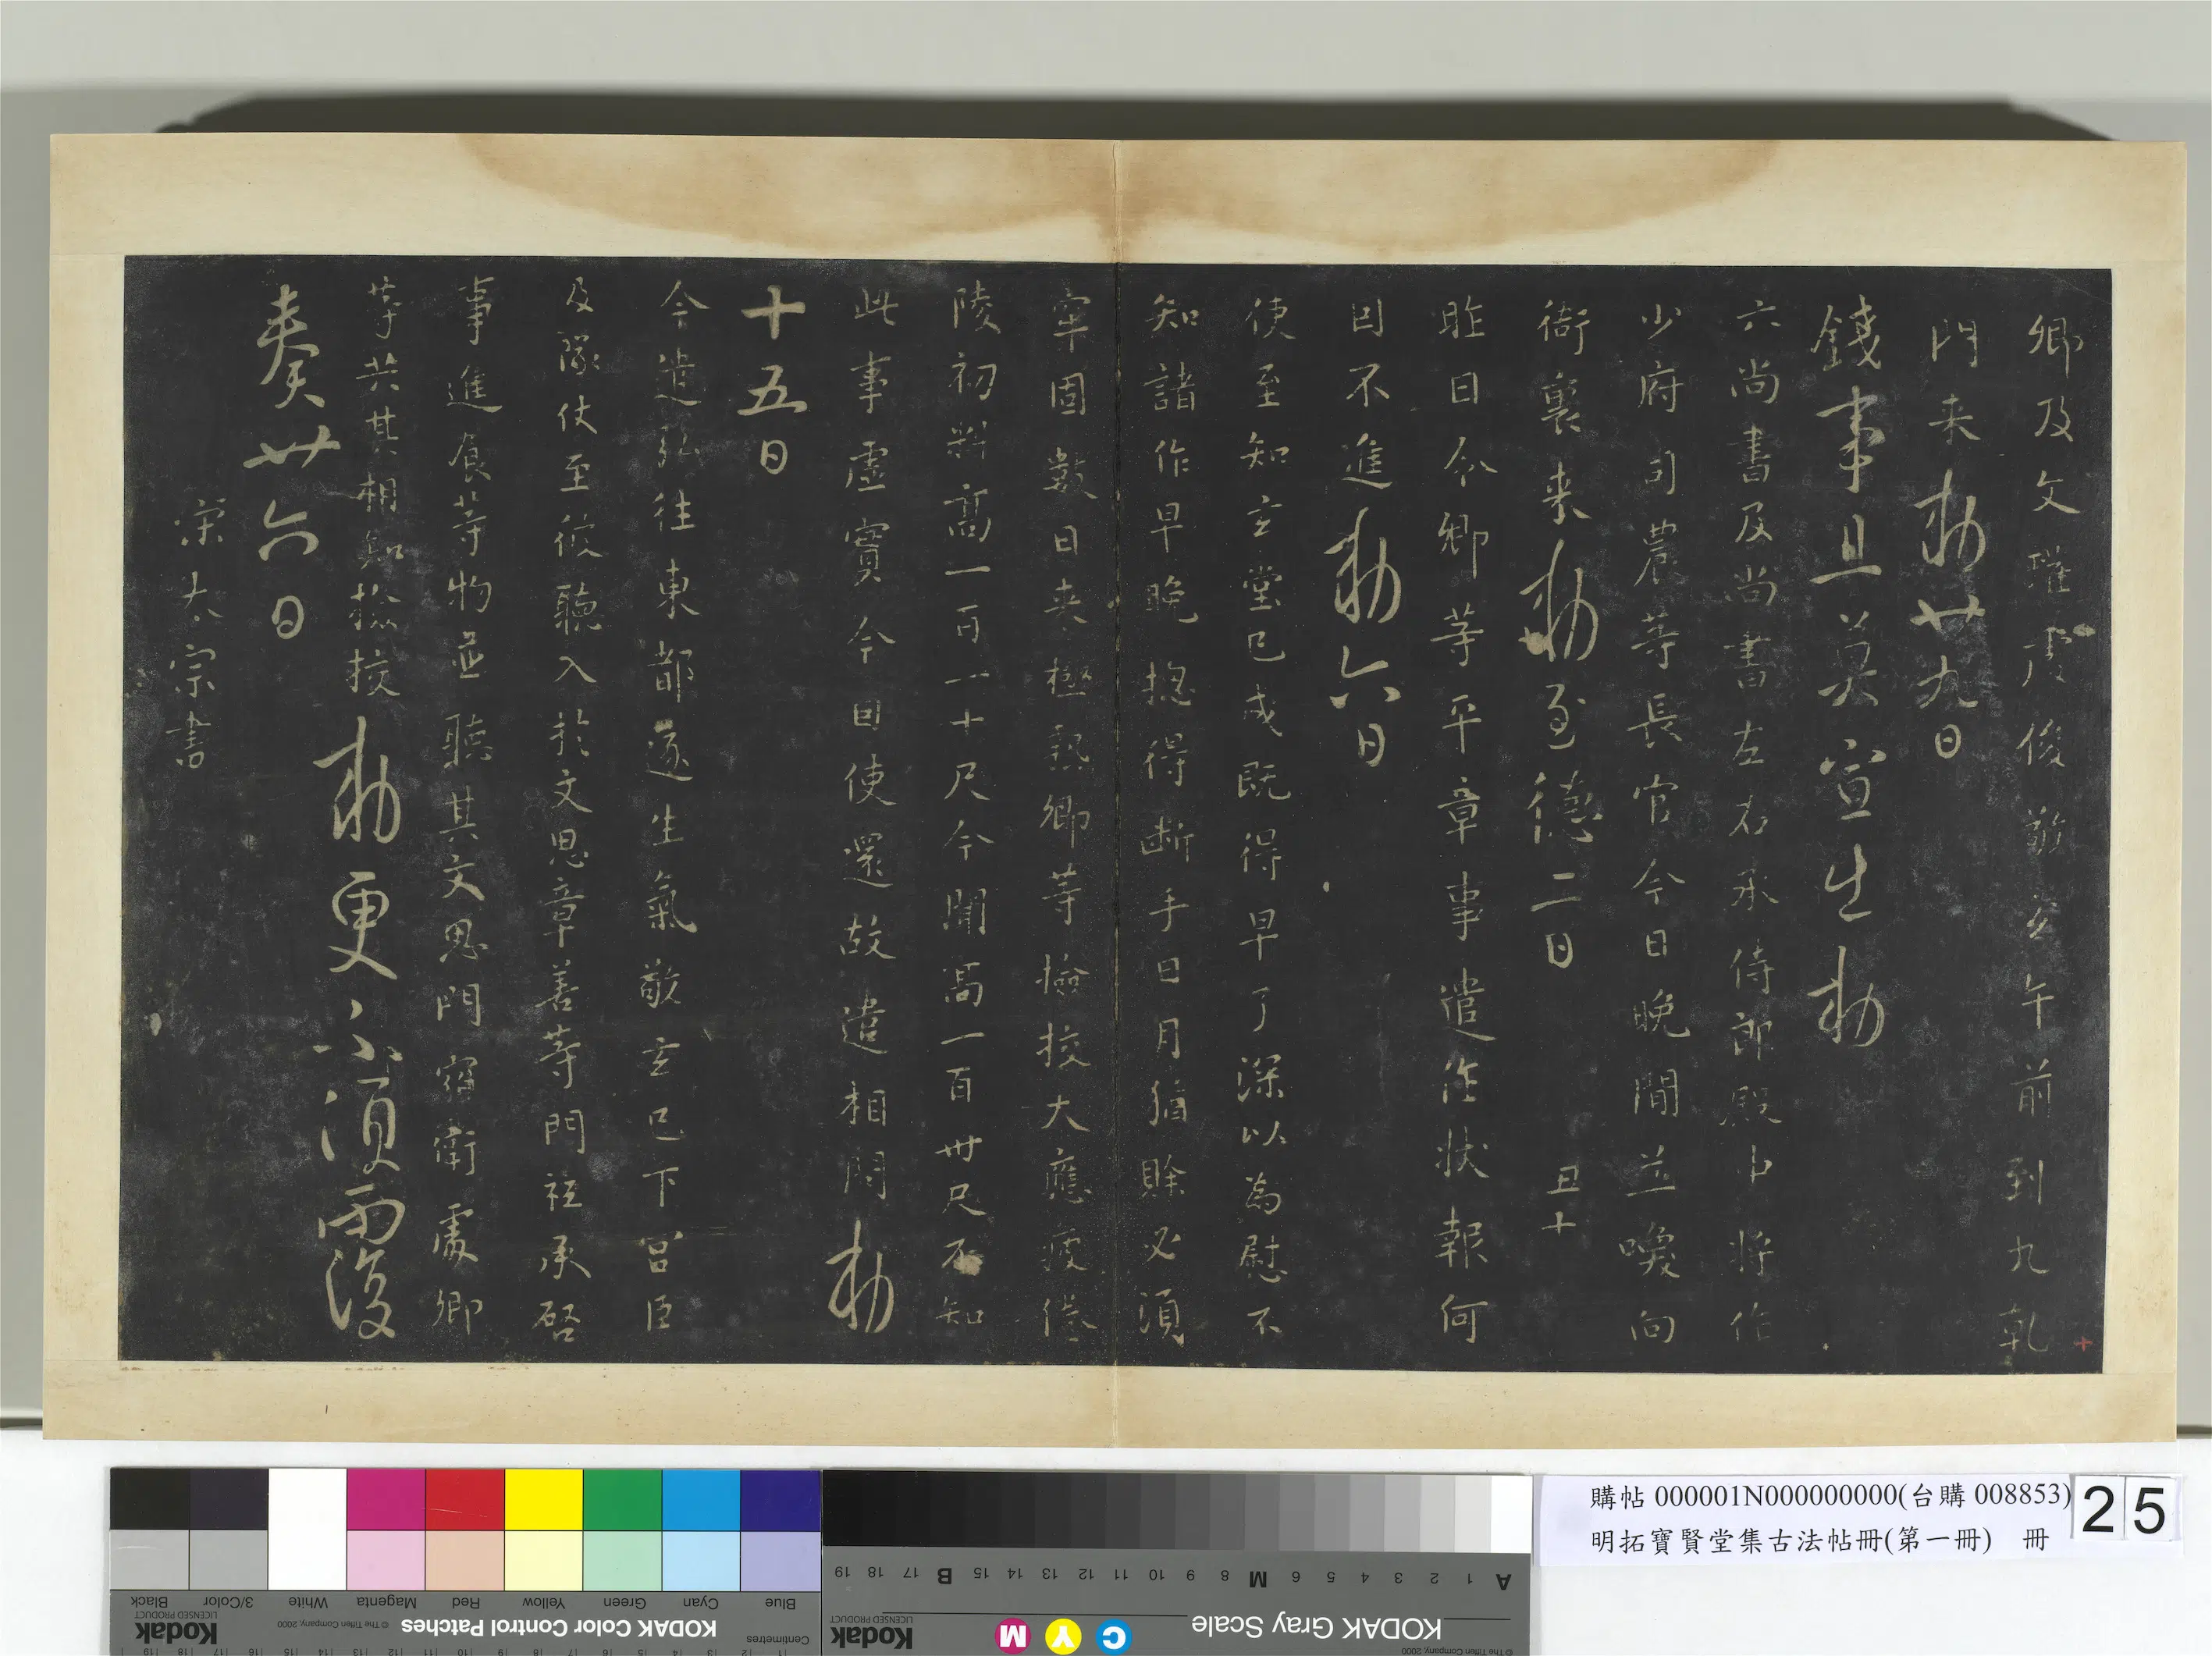 卿及文瓘處俊敬玄午前到九乹
門来勅廿九日
錢事且莫宣出勅
六尚書及尚書左右丞侍郎殿中將作
少府司農等長官今日晚間並喚向
衙裏来勅 至德二日 丑十
昨日令卿等平章事遣作狀報何
因不進勅六日
使至知玄堂已成既得早了深以為慰不
知諸作早晚揔得断手日月猶賒必須
牢固數日来極熱卿等撿挍大應疲倦
陵初料髙一百一十尺今聞高一百卅尺不知
此事虛實今日使還故遣相問勅
十五日
今遣弘往東都逐生氣敬玄已下宫臣
及隊仗至彼聽入於文思章善等門祗承啓
事進食等物並聽其文思門宿衛處卿
等共其相知撿挍勅更不須覆
奏廿六日
宋太宗書
購帖 000001N000000000(台購 008853)
明拓寶賢堂集古法帖冊(第一冊) 冊
25
Black 3/Color White Magenta Red Yellow Green Cyan Blue
Kodak LICENSED PRODUCT © The Tiffen Company, 2000 KODAK Color Control Patches Centimetres
A 1 2 3 4 5 6 M 8 9 10 11 12 13 14 15 B 17 18 19
KODAK Gray Scale C Y M Kodak LICENSED PRODUCT
© The Tiffen Company, 2000